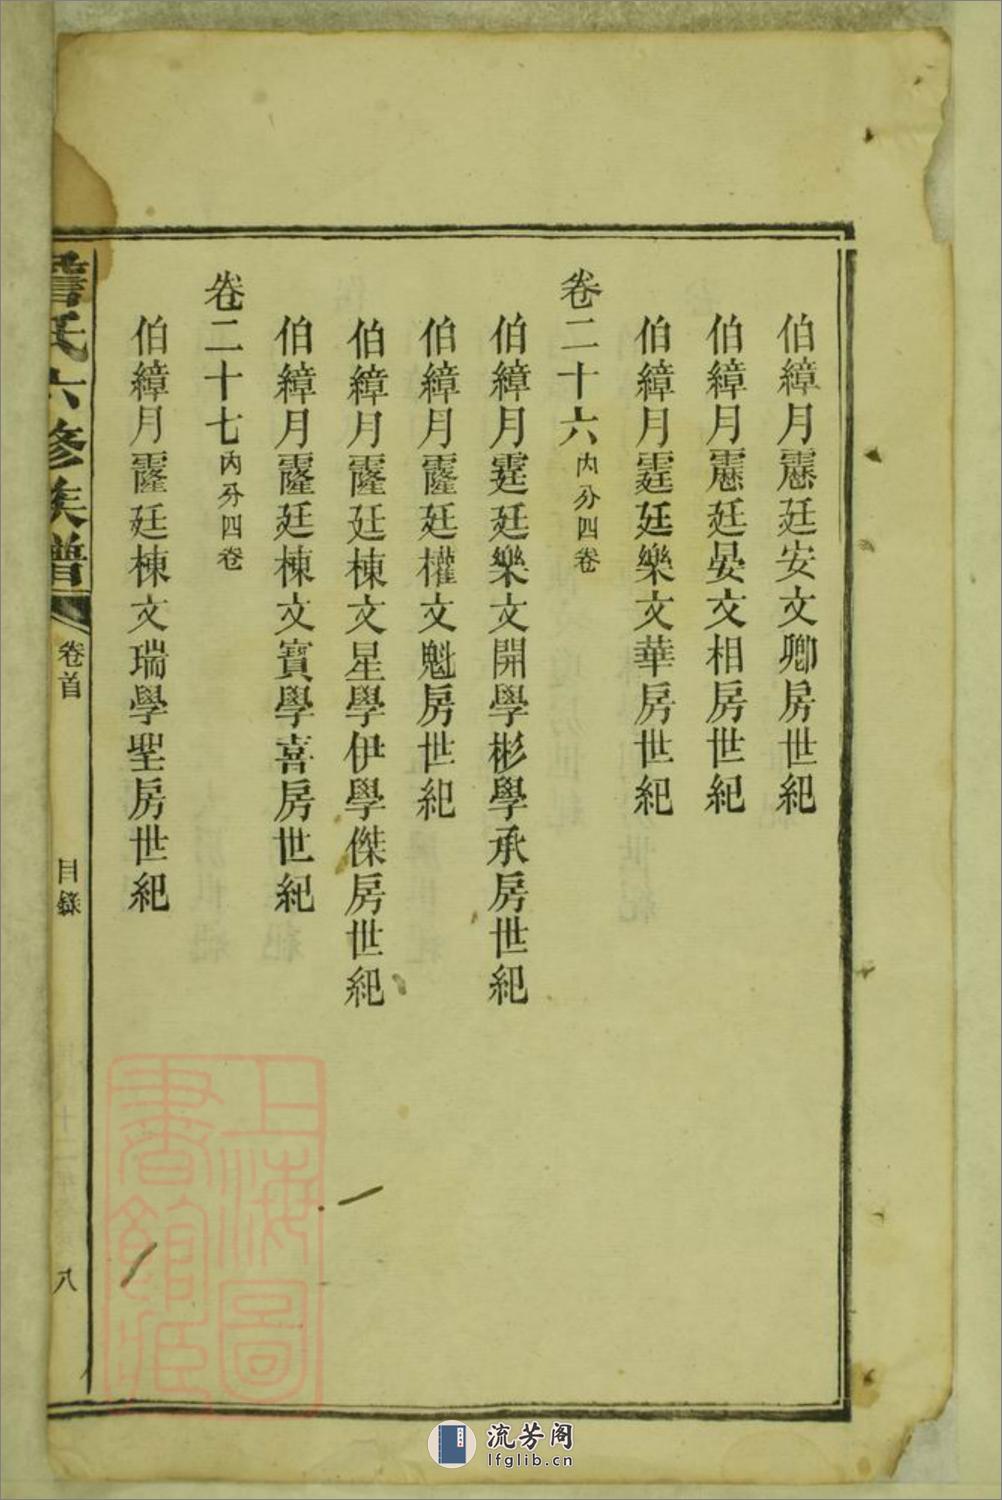 伯繂月靋廷安文卿房世紀
伯繂月靋廷晏文相房世紀
伯繂月霆廷樂文華房世紀
卷二十六內分四卷
伯繂月霆廷樂文開學彬學承房世紀
伯繂月霳廷權文魁房世紀
伯繂月霳廷棟文星學伊學傑房世紀
伯繂月霳廷棟文寶學喜房世紀
卷二十七內分四卷
伯繂月霳廷棟文瑞學聖房世紀
氏六修族譜
卷首
目錄
八
上海圖書館藏
流芳阁
lfglib.cn